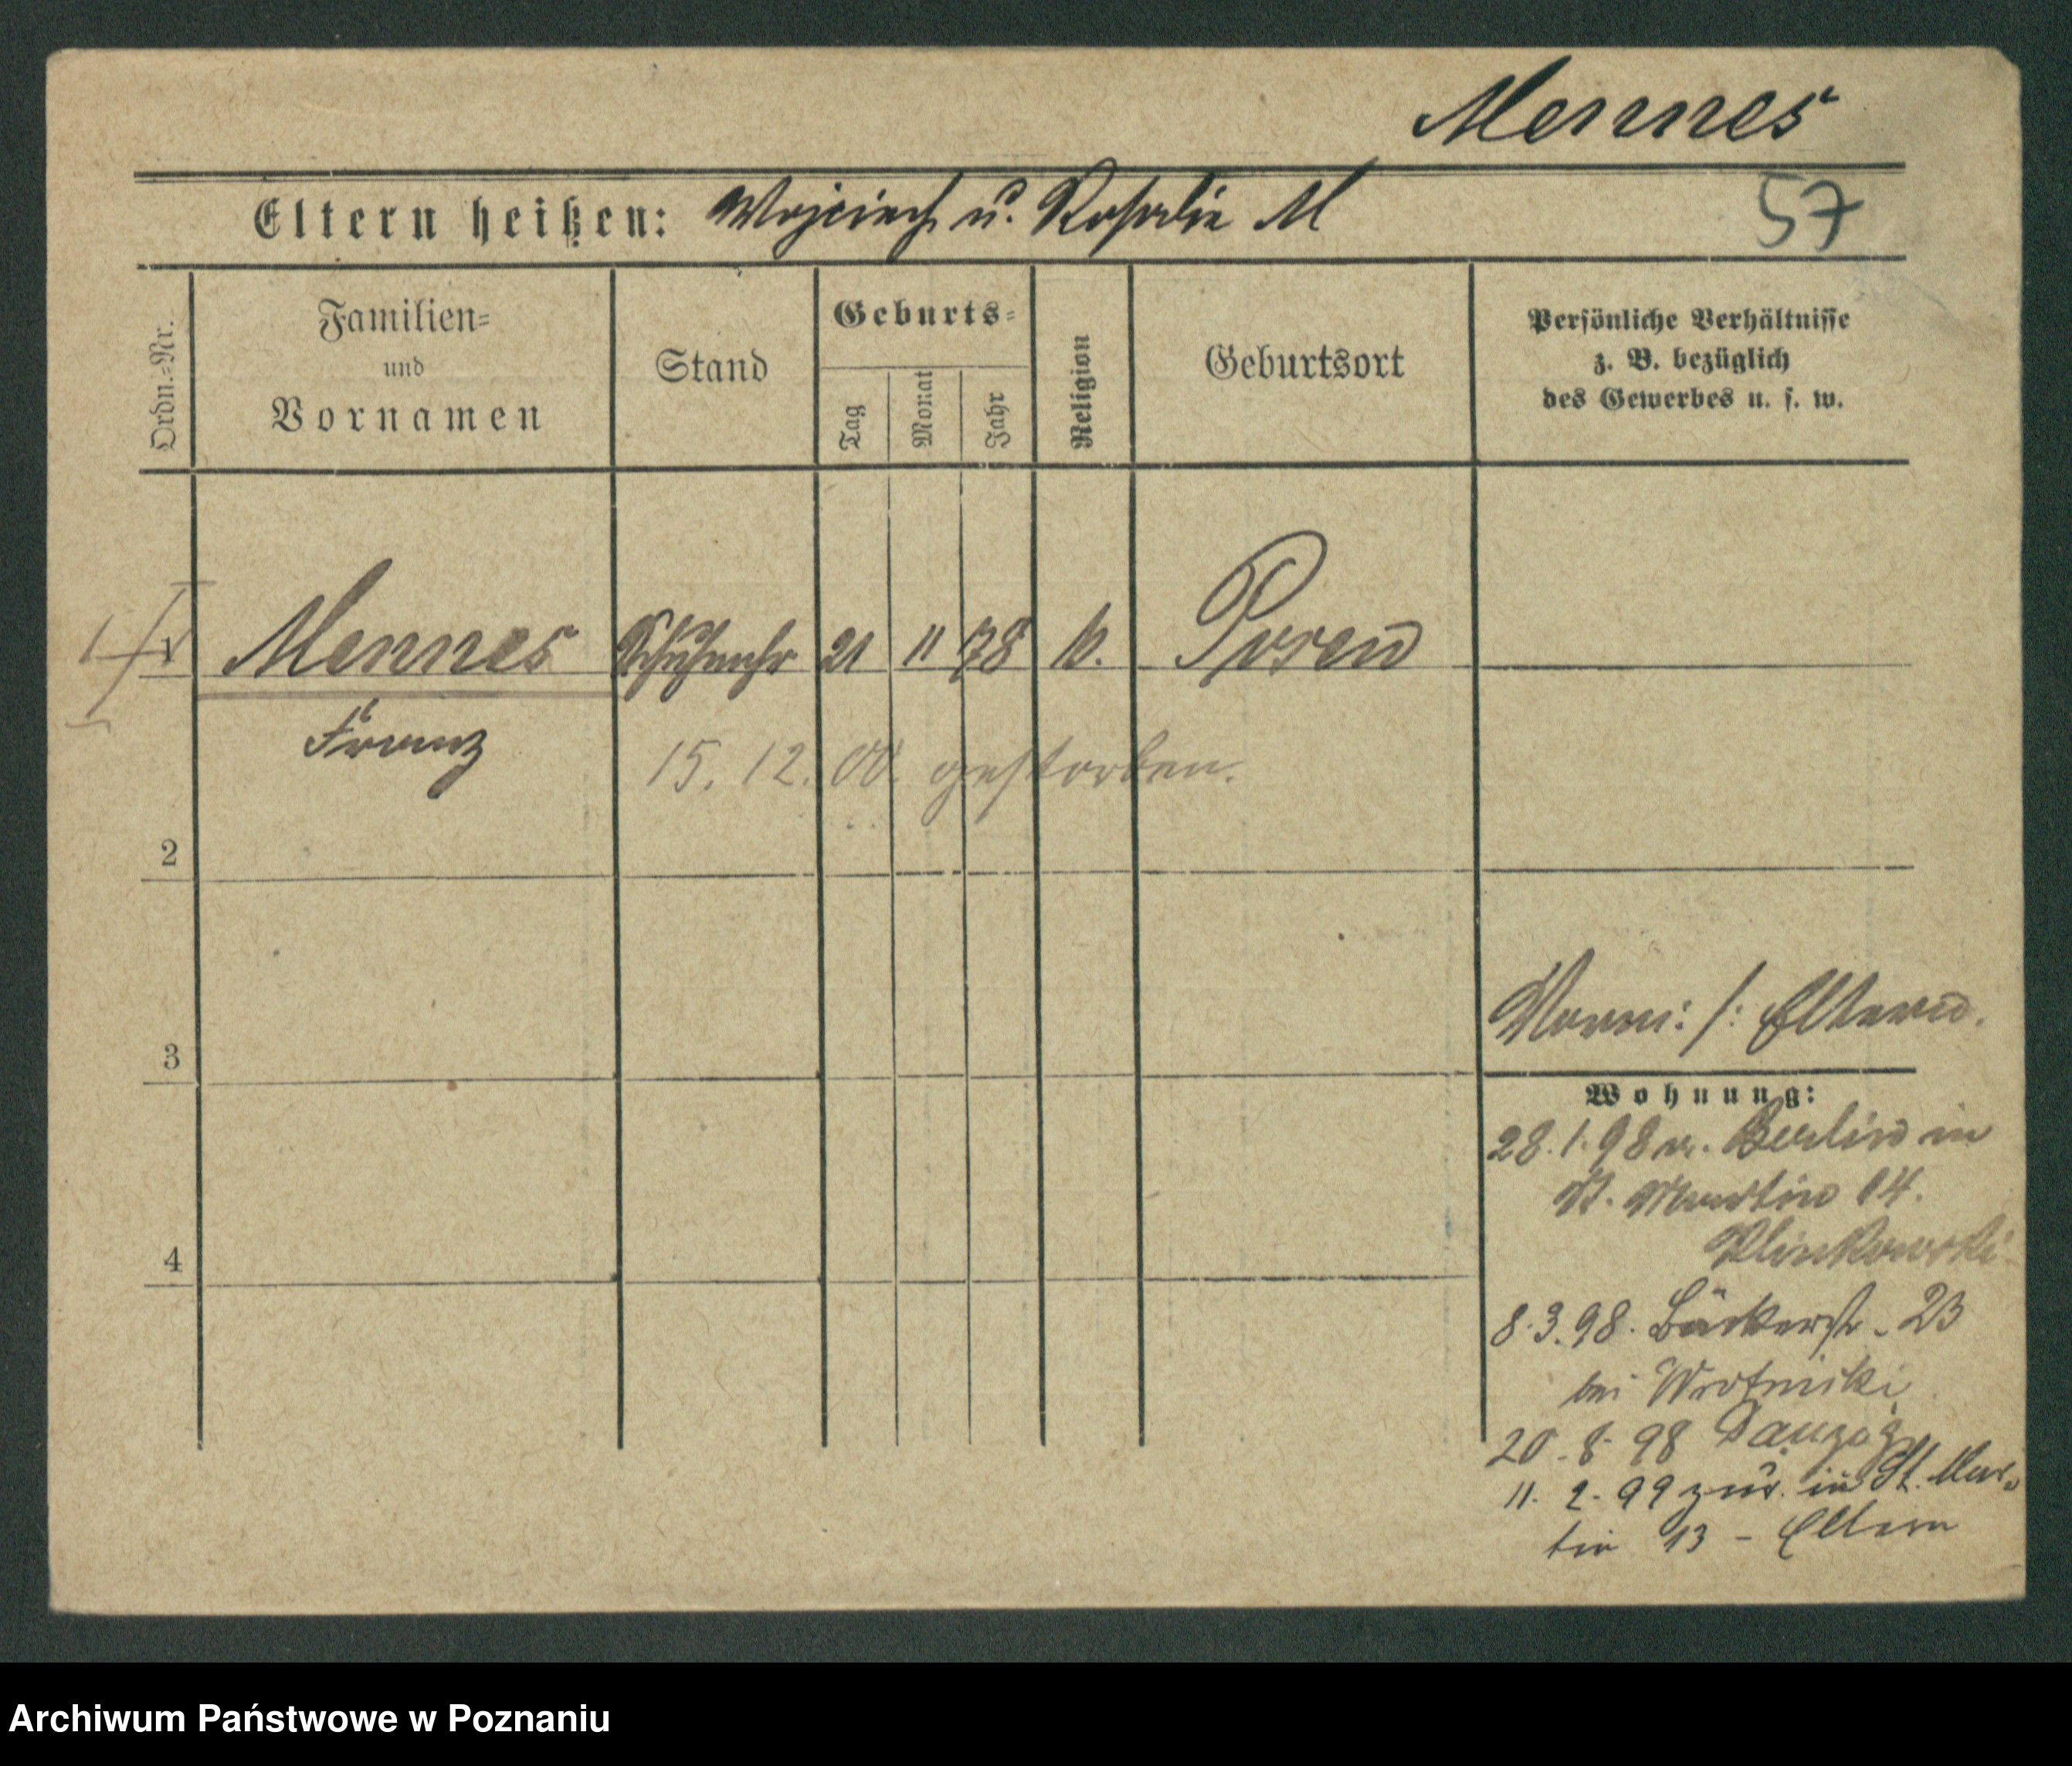 Mennes
Eltern heißen: Wojciech u. Rosalie M
57
Ordn.-Nr.
Familien-
und
Vornamen
Stand
Geburts-
Tag
Monat
Jahr
Religion
Geburtsort
Persönliche Verhältnisse
z. B. bezüglich
des Gewerbes u. s. w.
1 Mennes 21 11 78 k. Posen
Franz
15. 12. 00. gestorben.
2
3
Eltern.
Wohnung:
28. 1. 98 v. Berlin in
St. Martin 14.
4
8. 3. 98. Bäckerstr. 23
bei
20. 8. 98 Danzig
11. 2. 99 zur. in St. Mar-
tin 13 - Eltern
Archiwum Państwowe w Poznaniu